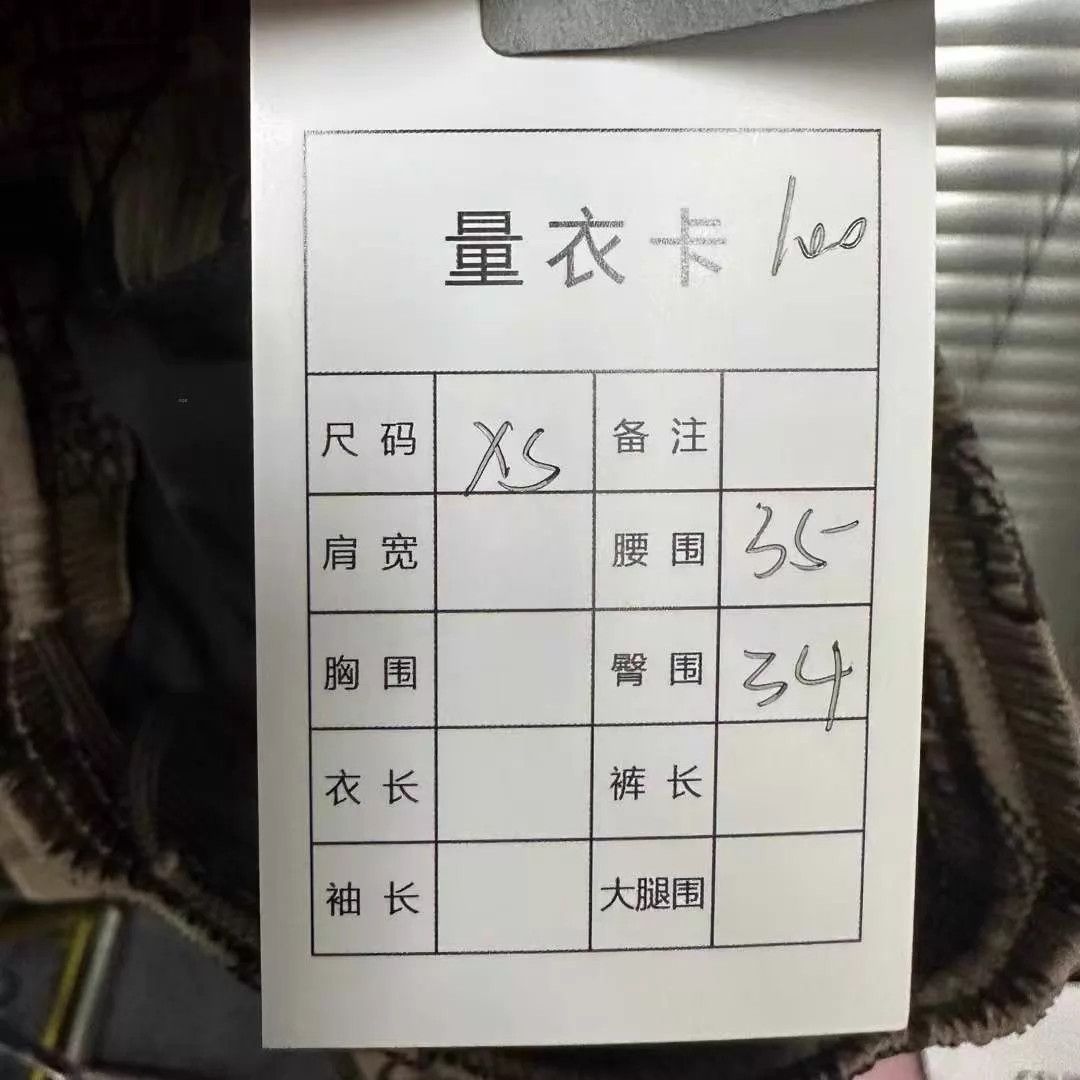 量衣卡 100
尺码 XS 备注
肩宽 腰围 35
胸围 臀围 34
衣长 裤长
袖长 大腿围